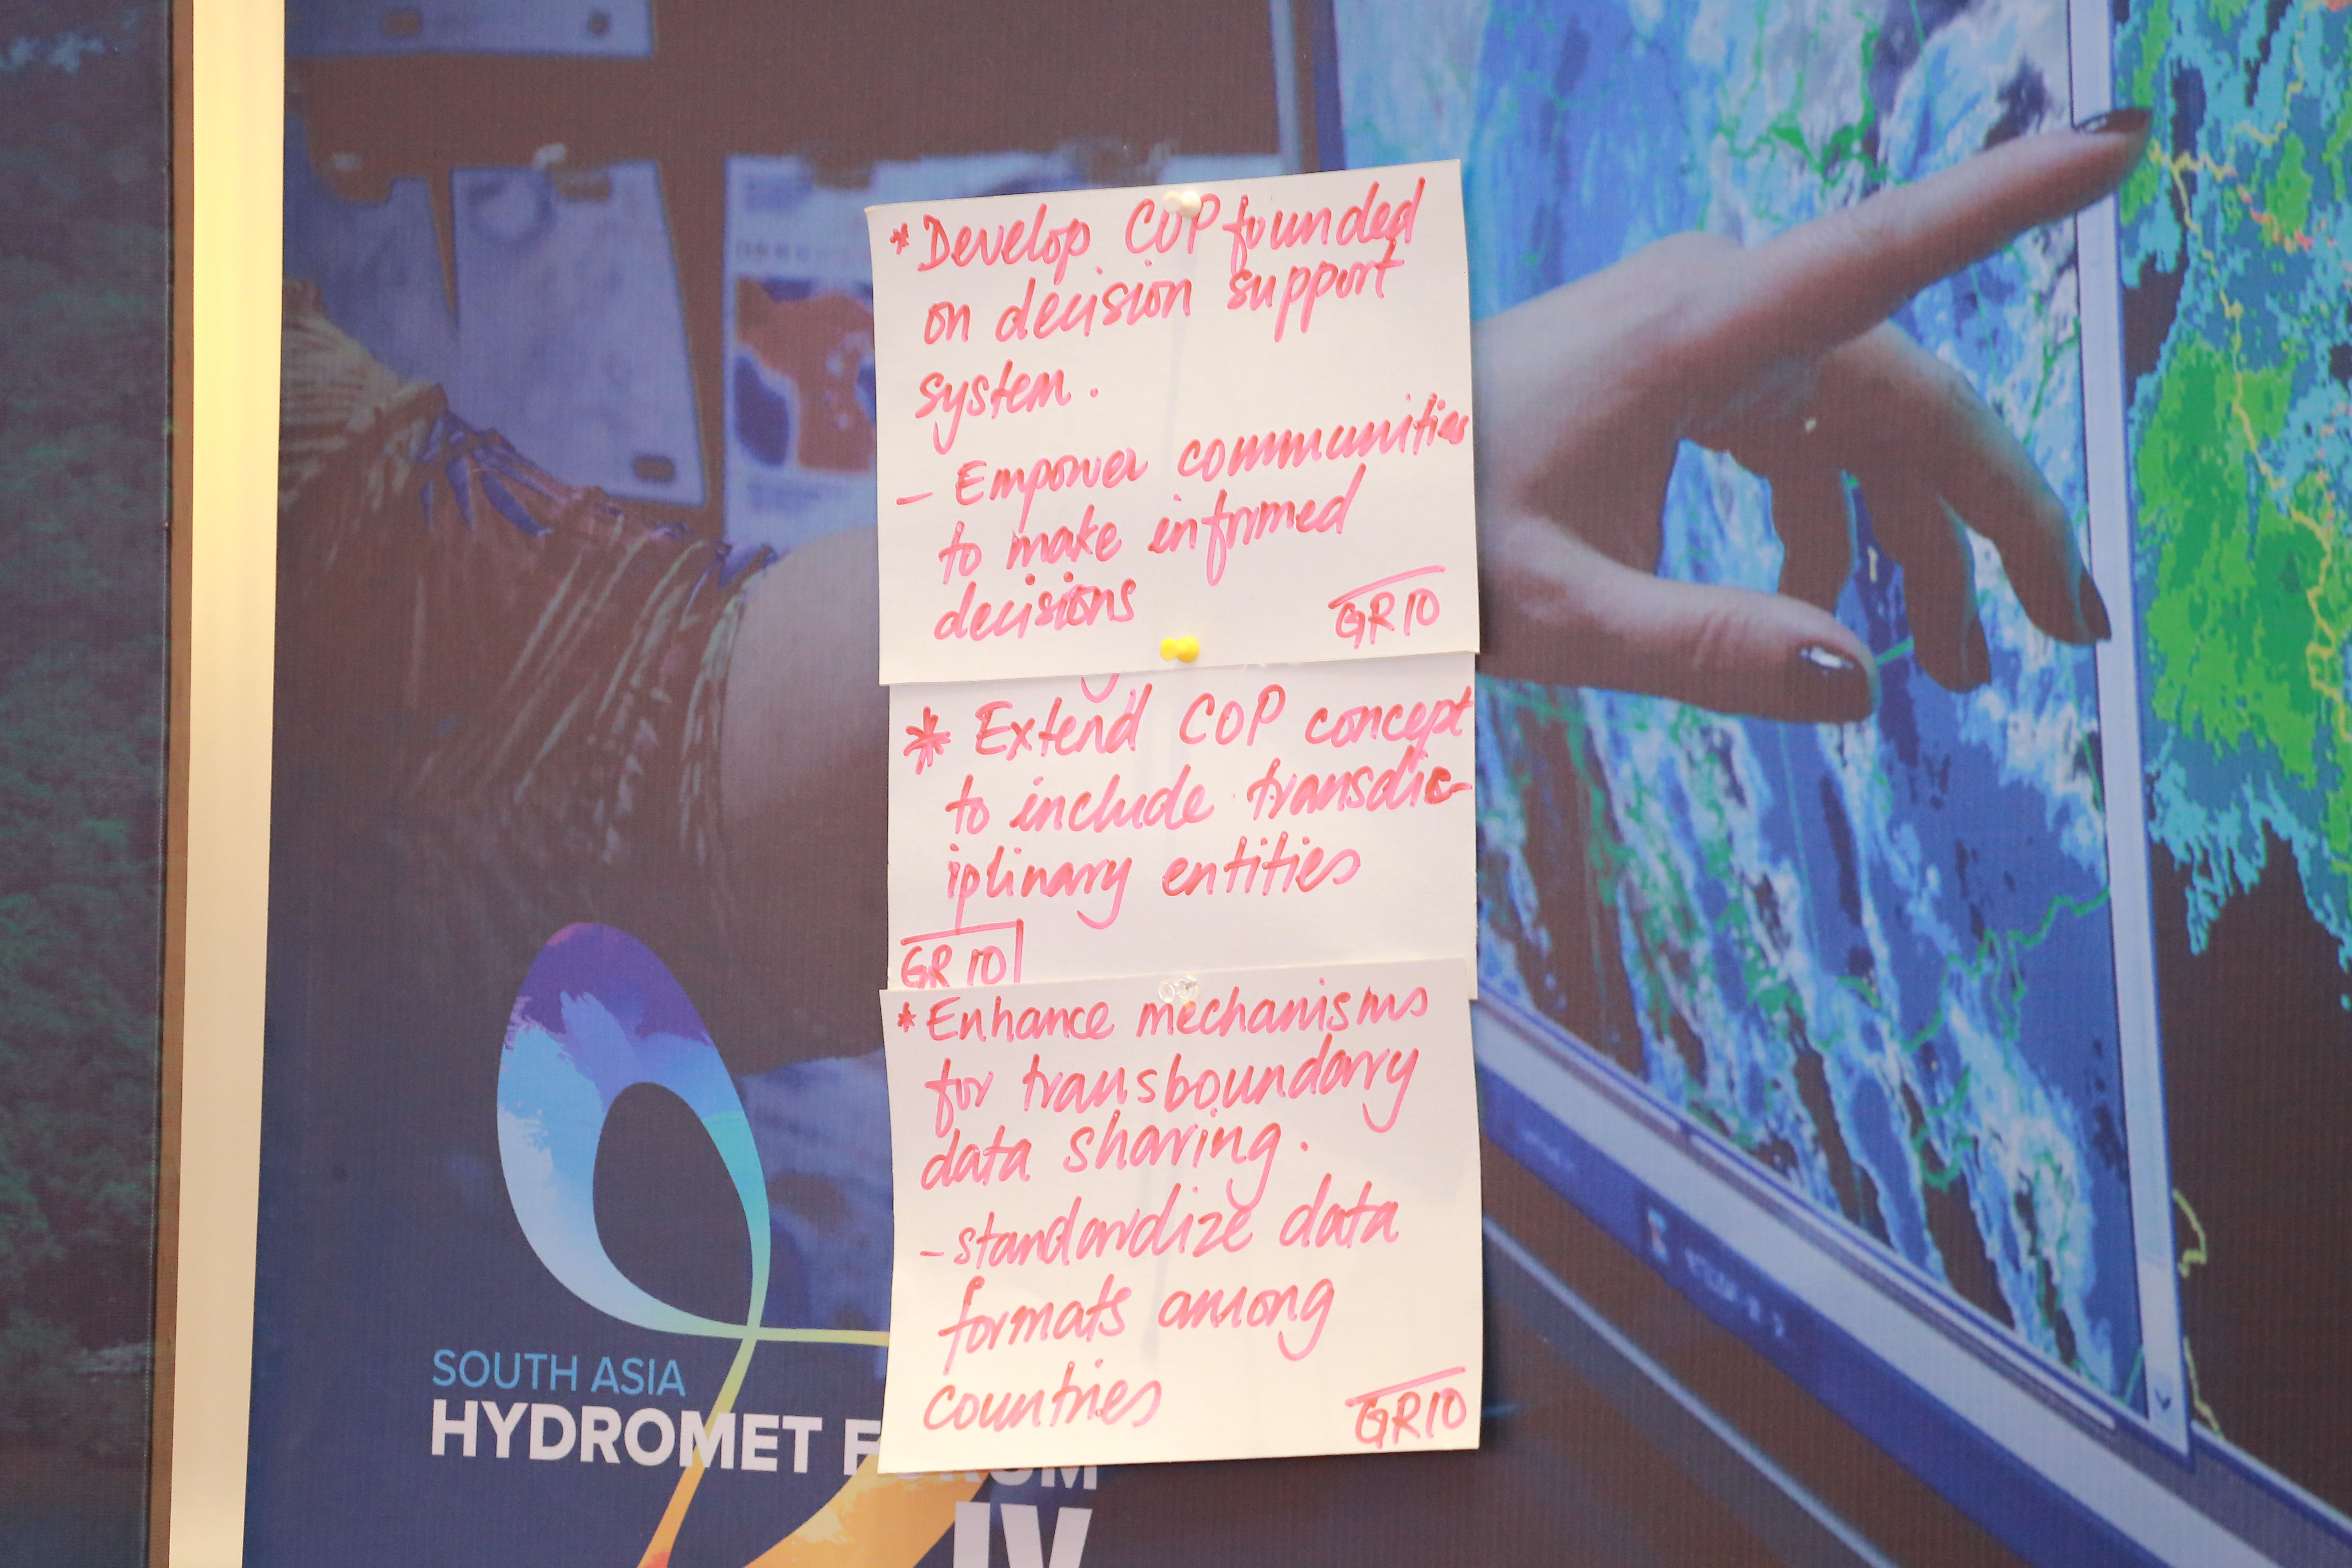 * Develop COP founded
on decision support
system.
- Empower communities
to make informed
decisions
GR10
* Extend COP concept
to include transdic-
iplinary entities
GR 10
* Enhance mechanisms
for transboundary
data sharing.
- standardize data
formats among
countries
GR10
SOUTH ASIA
HYDROMET FORUM
IV